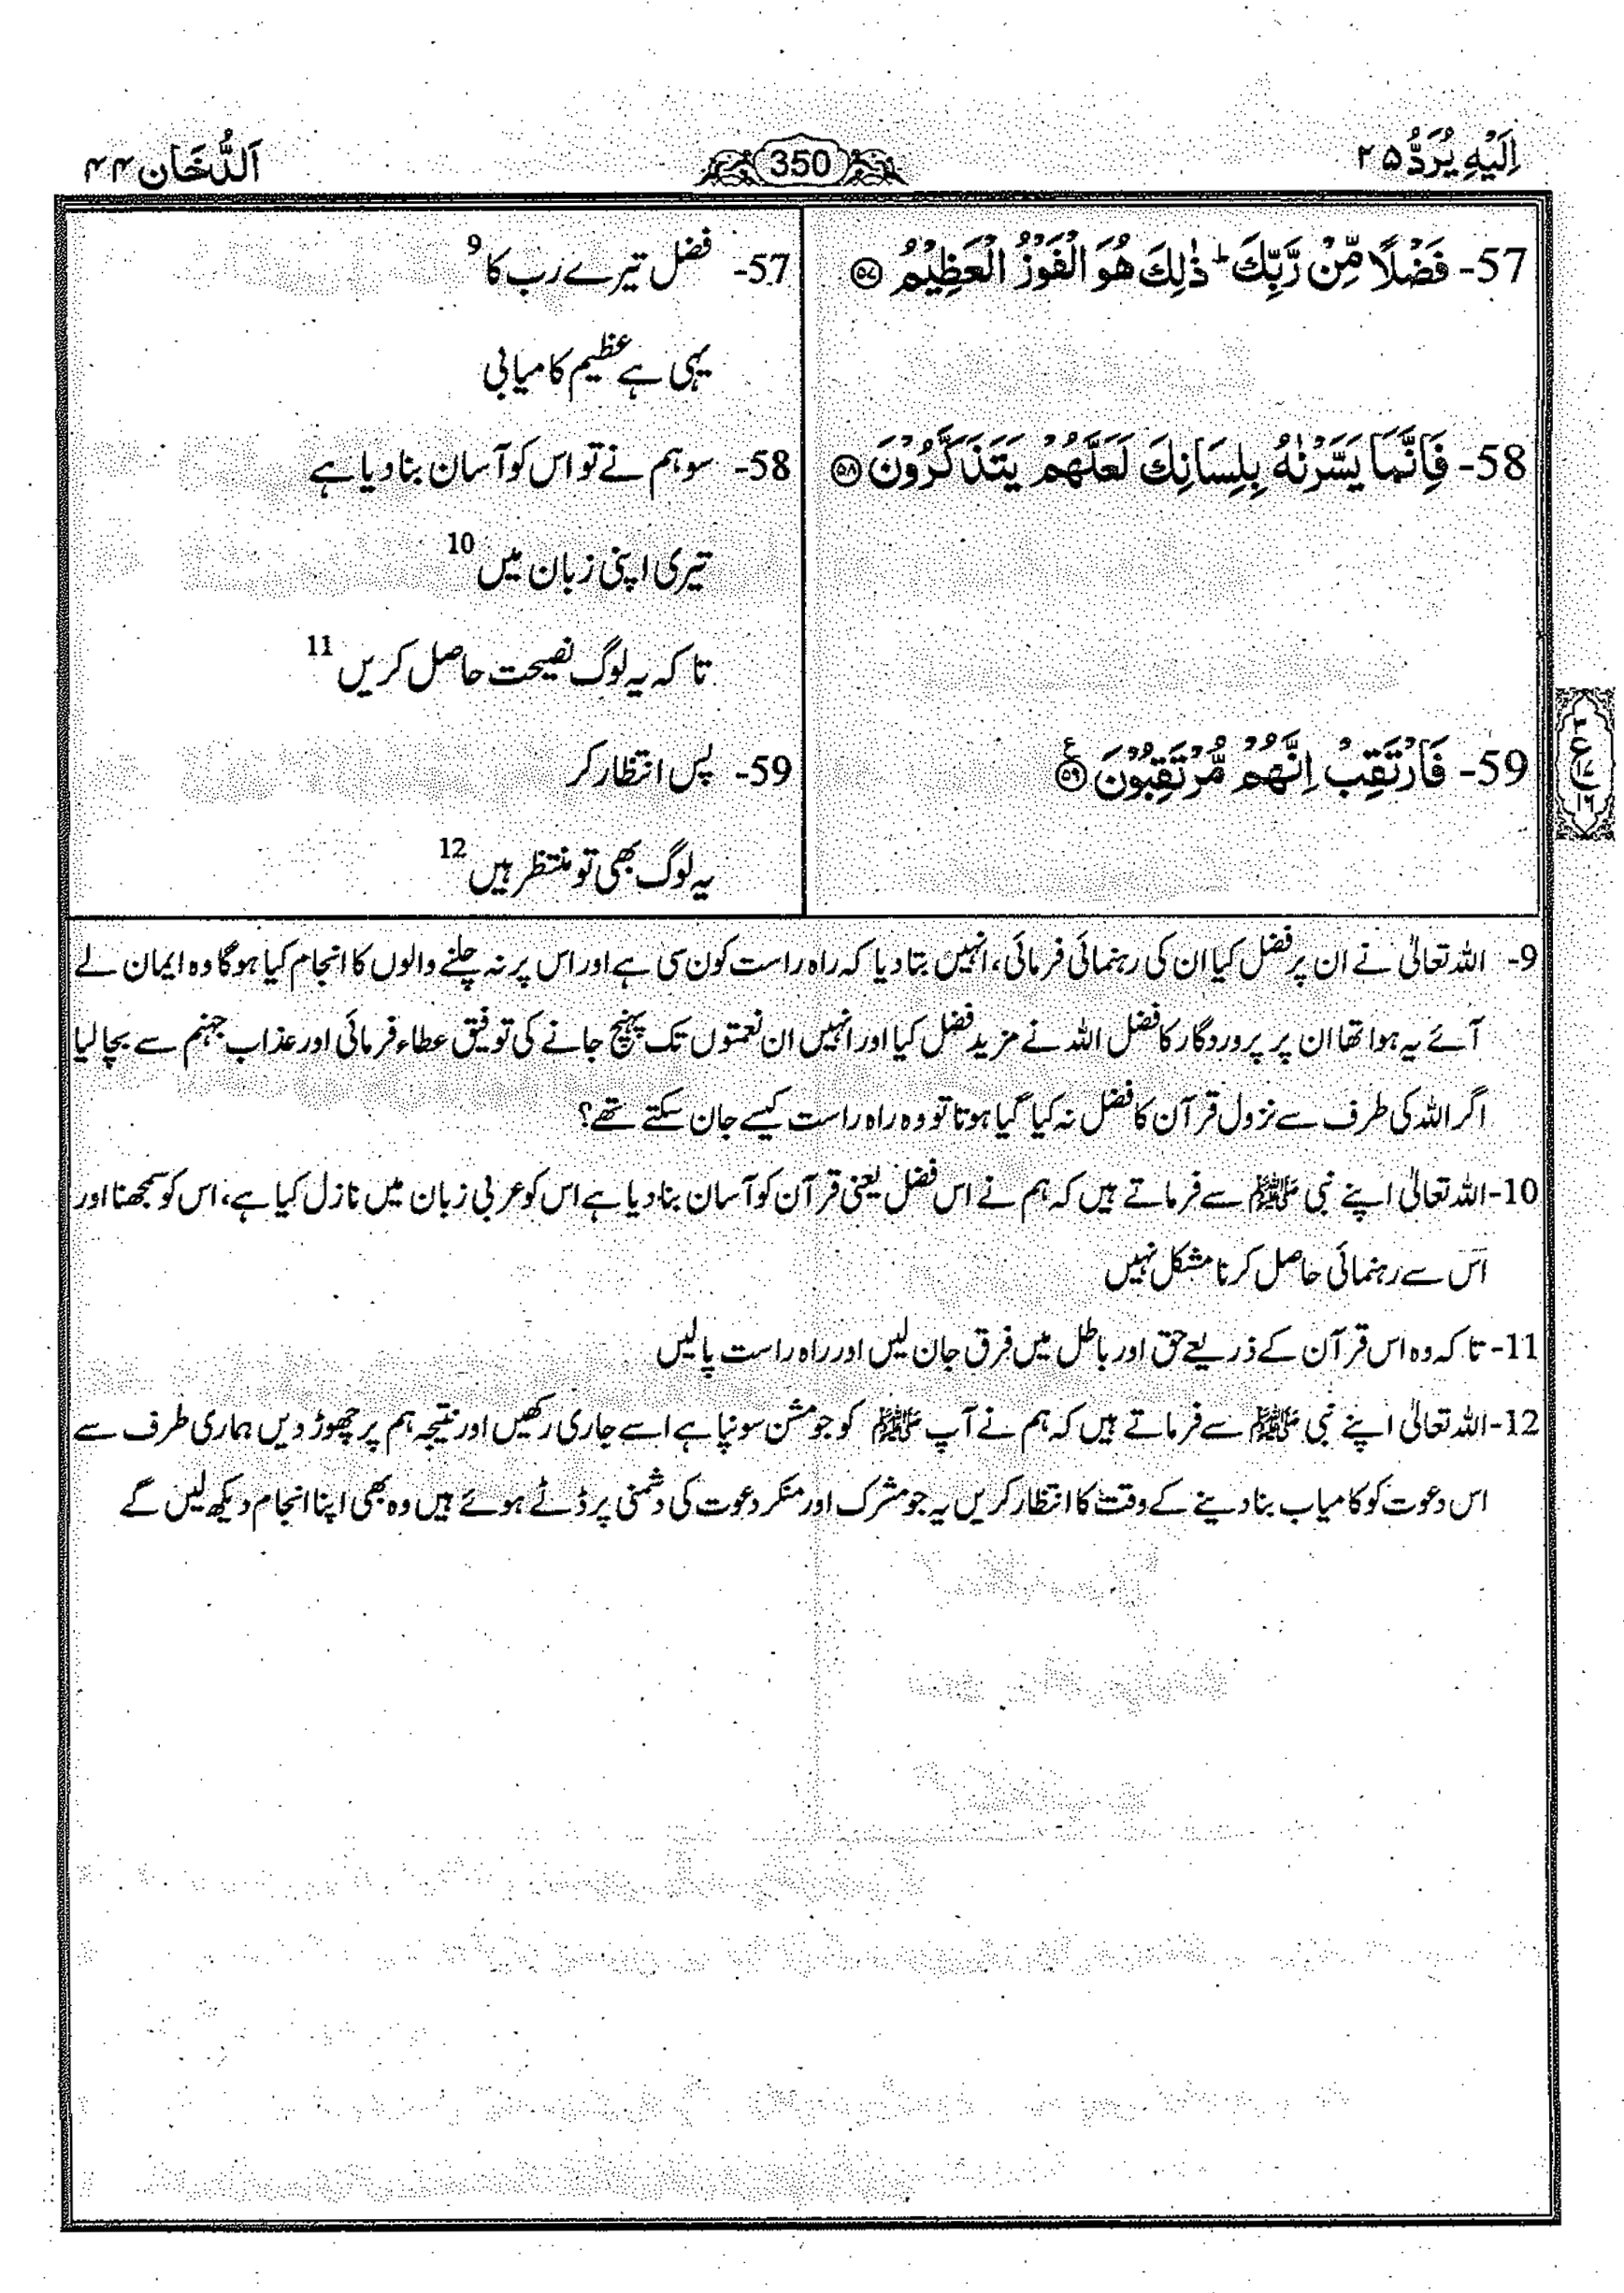 اِلَيْهِ يُرَدُّ ۲۵
350
اَلدُّخَان ۴۴
57- فَضْلًا مِّنْ رَّبِّكَ ؕ ذٰلِكَ هُوَ الْفَوْزُ الْعَظِيْمُ ﴿۵۷﴾
57- فضل تیرے رب کا 9
یہی ہے عظیم کامیابی
58- فَاِنَّمَا يَسَّرْنٰهُ بِلِسَانِكَ لَعَلَّهُمْ يَتَذَكَّرُوْنَ ﴿۵۸﴾
58- سو ہم نے تو اس کو آسان بنا دیا ہے
تیری اپنی زبان میں 10
تا کہ یہ لوگ نصیحت حاصل کریں 11
59- فَارْتَقِبْ اِنَّهُمْ مُّرْتَقِبُوْنَ ﴿۵۹﴾ ع
59- پس انتظار کر
یہ لوگ بھی تو منتظر ہیں 12
9- اللہ تعالٰی نے ان پر فضل کیا ان کی رہنمائی فرمائی، انہیں بتا دیا کہ راہ راست کون سی ہے اور اس پر نہ چلنے والوں کا انجام کیا ہو گا وہ ایمان لے
آئے یہ ہوا تھا ان پر پروردگار کا فضل اللہ نے مزید فضل کیا اور انہیں ان نعمتوں تک پہنچ جانے کی توفیق عطاء فرمائی اور عذاب جہنم سے بچا لیا
اگر اللہ کی طرف سے نزول قرآن کا فضل نہ کیا گیا ہوتا تو وہ راہ راست کیسے جان سکتے تھے؟
10- اللہ تعالٰی اپنے نبی ﷺ سے فرماتے ہیں کہ ہم نے اس فضل یعنی قرآن کو آسان بنا دیا ہے اس کو عربی زبان میں نازل کیا ہے، اس کو سمجھنا اور
اس سے رہنمائی حاصل کرنا مشکل نہیں
11- تا کہ وہ اس قرآن کے ذریعے حق اور باطل میں فرق جان لیں اور راہ راست پا لیں
12- اللہ تعالٰی اپنے نبی ﷺ سے فرماتے ہیں کہ ہم نے آپ ﷺ کو جو مشن سونپا ہے اسے جاری رکھیں اور نتیجہ ہم پر چھوڑ دیں ہماری طرف سے
اس دعوت کو کامیاب بنا دینے کے وقت کا انتظار کریں یہ جو مشرک اور منکر دعوت کی دشمنی پر ڈٹے ہوئے ہیں وہ بھی اپنا انجام دیکھ لیں گے